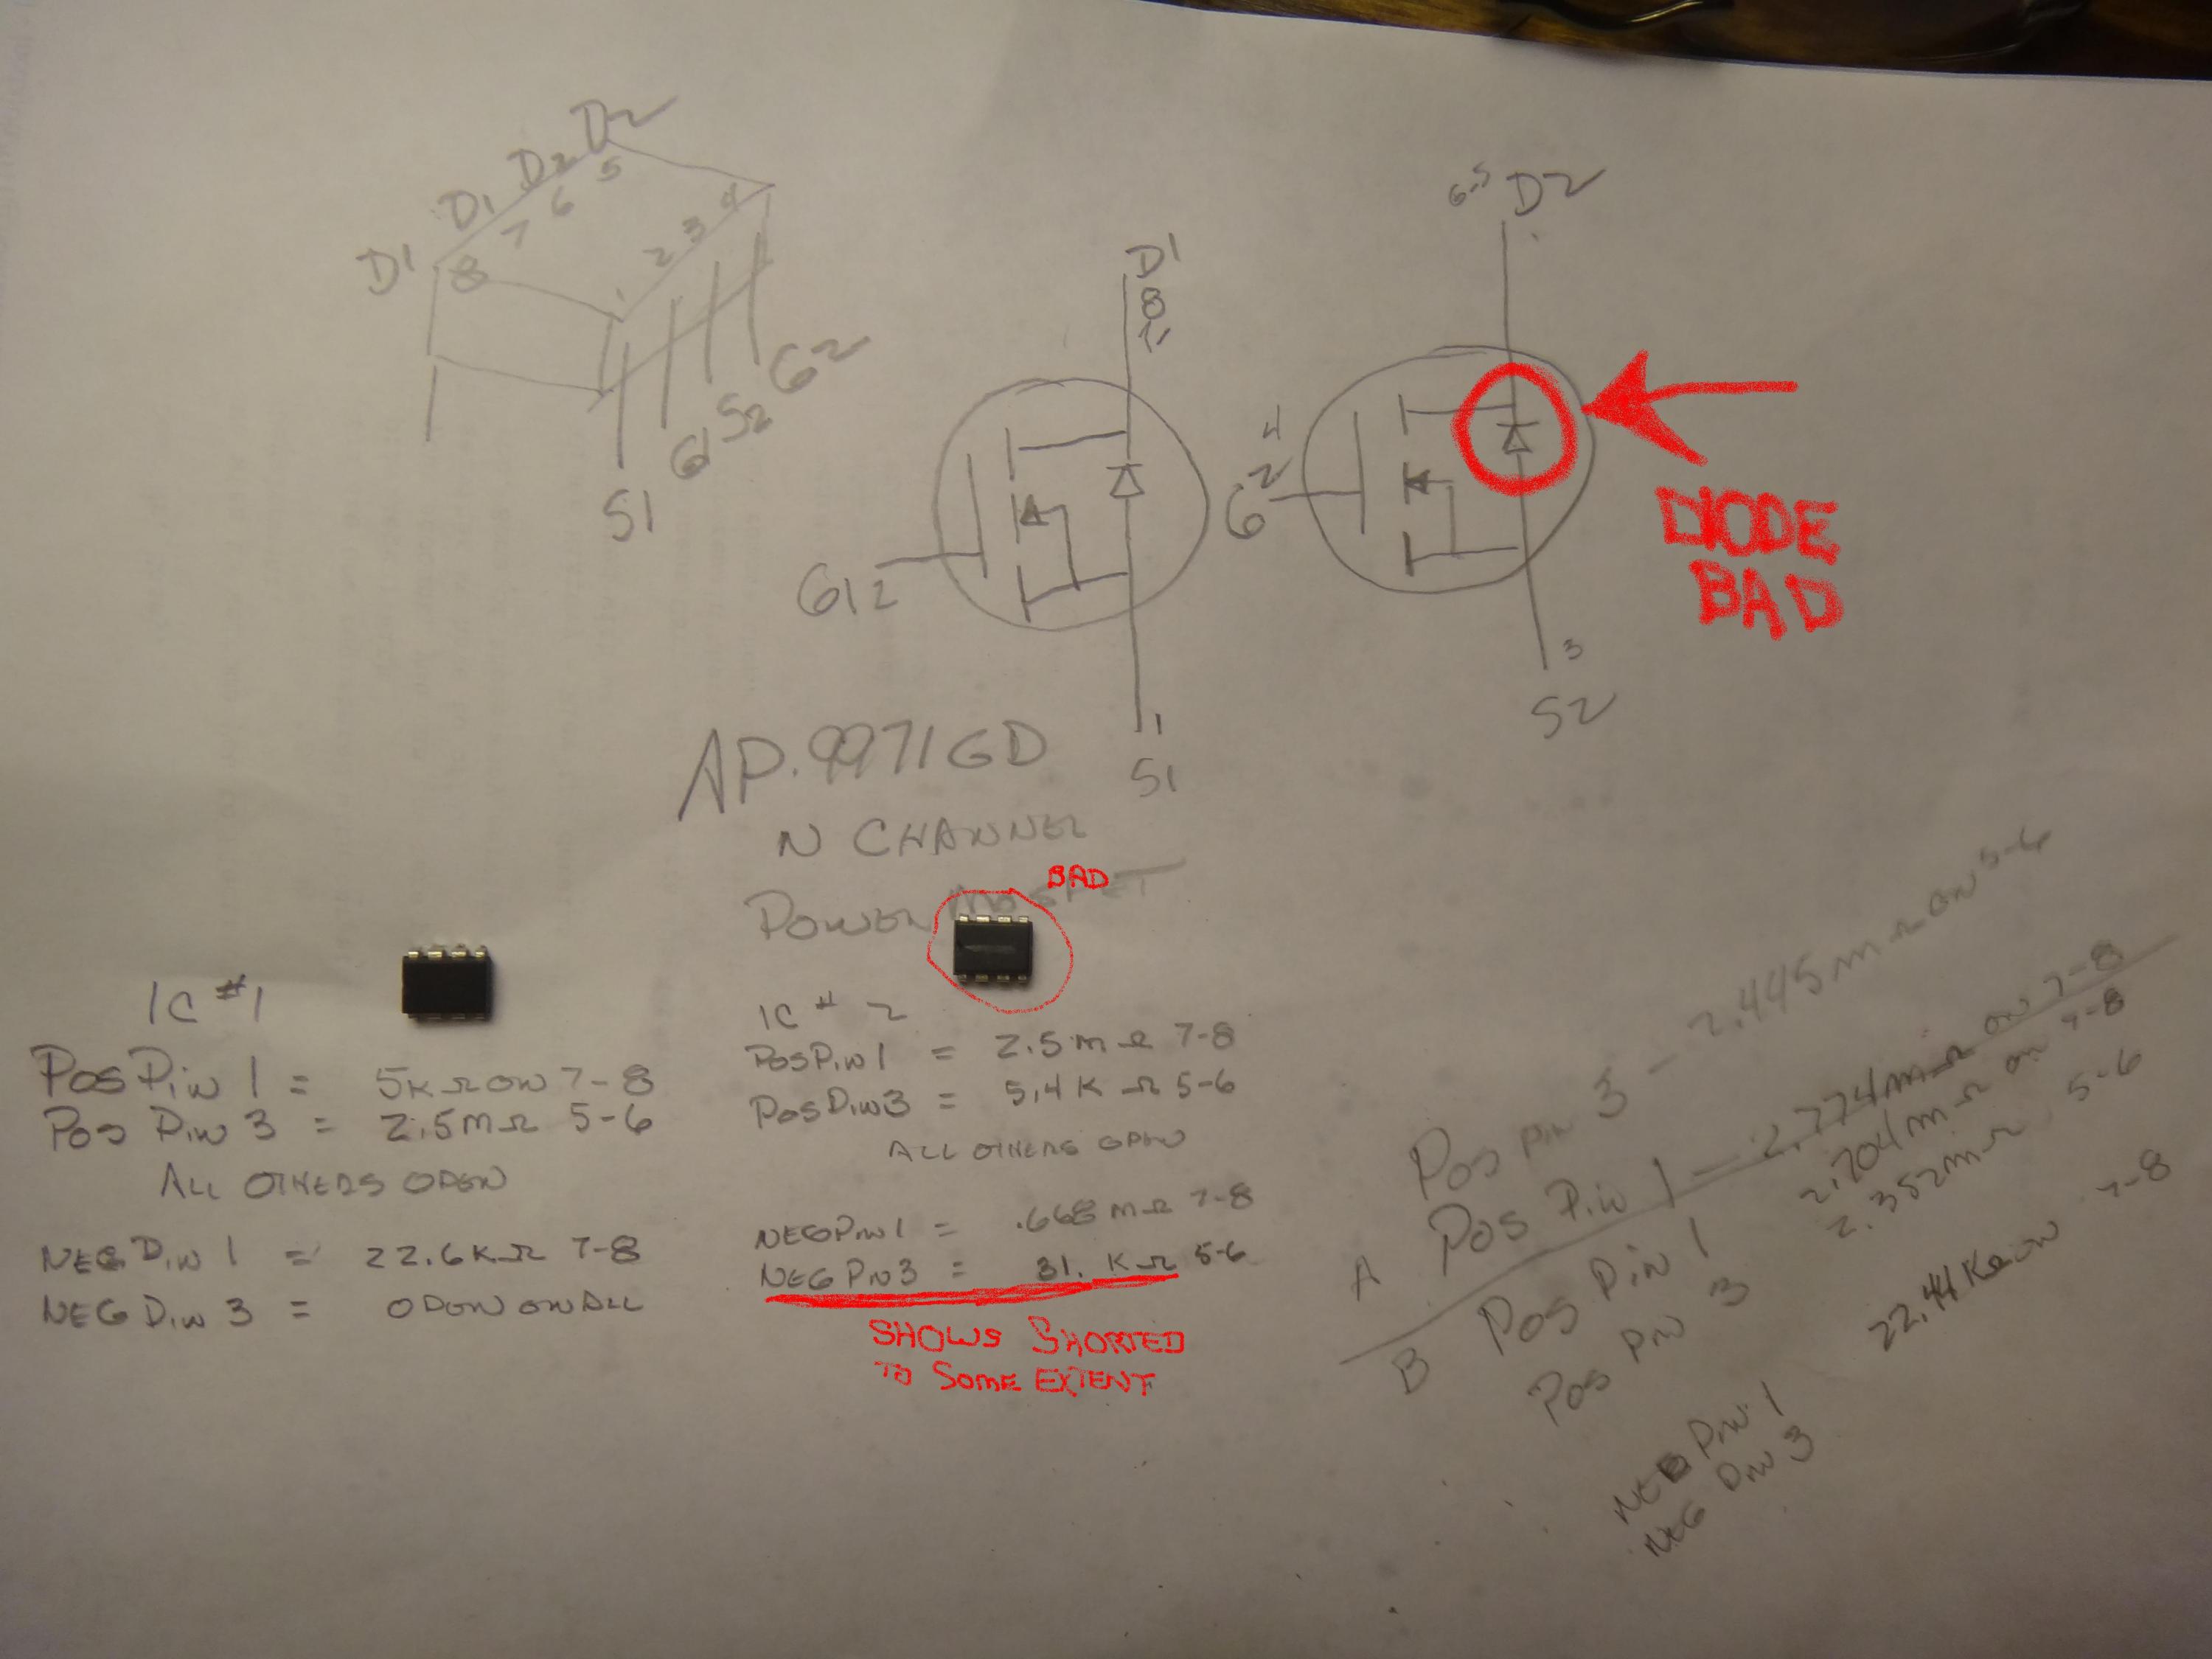 D2
D2
D1
D1
5
6
7
8
4
3
2
1
G2
S2
G1
S1
D1
8
7
G1 2
1
S1
6-5 D2
4
G2
3
S2
DIODE
BAD
AP.9971GD
N CHANNEL
POWER MOSFET
BAD
IC #1
POS PIN 1 = 5K Ω ON 7-8
POS PIN 3 = 2.5 M Ω 5-6
ALL OTHERS OPEN
NEG PIN 1 = 22.6 K Ω 7-8
NEG PIN 3 = OPEN ON ALL
IC # 2
POS PIN 1 = 2.5 M Ω 7-8
POS PIN 3 = 5.4 K Ω 5-6
ALL OTHERS OPEN
NEG PIN 1 = .668 M Ω 7-8
NEG PIN 3 = 31. K Ω 5-6
SHOWS SHORTED
TO SOME EXTENT
POS PIN 3 - 2.445 M Ω ON 5-6
A POS PIN 1 - 2.774 M Ω ON 7-8
B POS PIN 1 2.704 M Ω ON 7-8
POS PIN 3 2.352 M Ω 5-6
NEG PIN 1 22.44 K Ω ON 7-8
NEG PIN 3